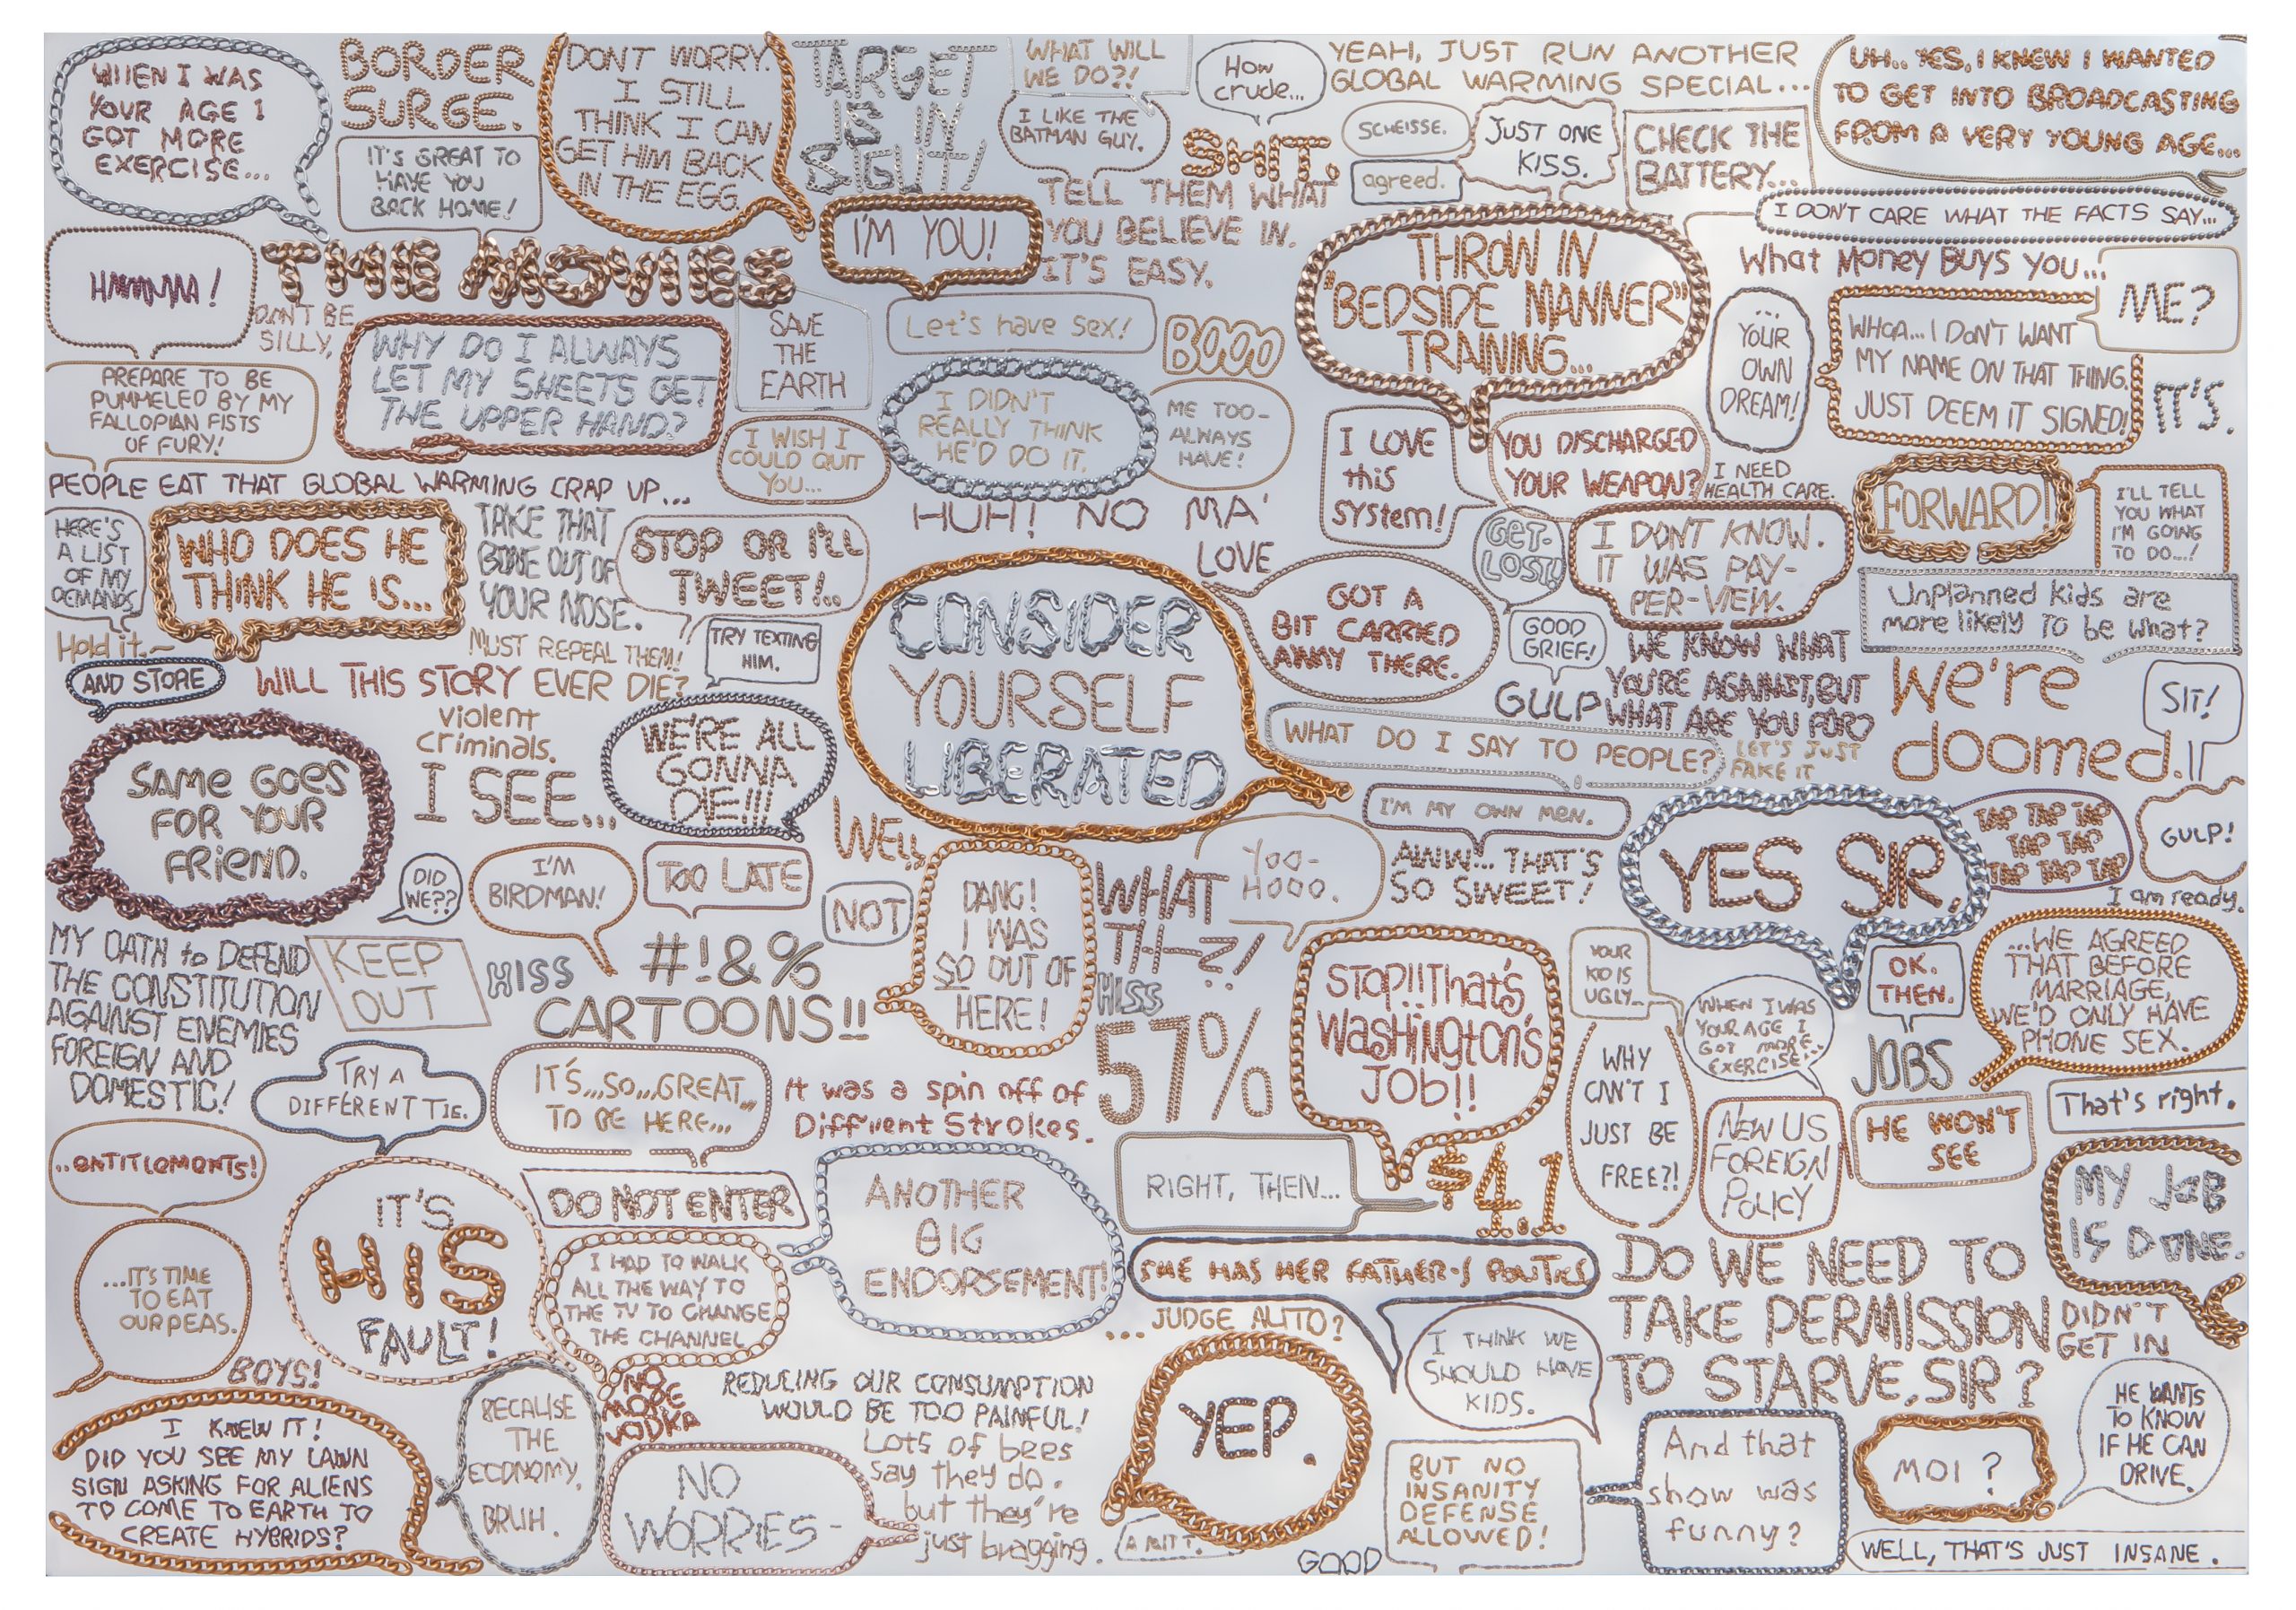 WHEN I WAS
YOUR AGE I
GOT MORE
EXERCISE...
BORDER
SURGE.
IT'S GREAT TO
HAVE YOU
BACK HOME!
DONT WORRY.
I STILL
THINK I CAN
GET HIM BACK
IN THE EGG.
TARGET
IS IN
SIGHT!
WHAT WILL
WE DO?!
I LIKE THE
BATMAN GUY.
How
crude...
SHIT.
YEAH, JUST RUN ANOTHER
GLOBAL WARMING SPECIAL...
SCHEISSE.
agreed.
JUST ONE
KISS.
CHECK THE
BATTERY...
UH... YES, I KNEW I WANTED
TO GET INTO BROADCASTING
FROM A VERY YOUNG AGE...
I DON'T CARE WHAT THE FACTS SAY...
TELL THEM WHAT
YOU BELIEVE IN.
IT'S EASY.
I'M YOU!
THE MOVIES
DON'T BE
SILLY,
PREPARE TO BE
PUMMELED BY MY
FALLOPIAN FISTS
OF FURY!
WHY DO I ALWAYS
LET MY SHEETS GET
THE UPPER HAND?
SAVE
THE
EARTH
Let's have Sex!
BOOO
THROW IN
"BEDSIDE MANNER"
TRAINING...
What Money Buys You...
ME?
...
YOUR
OWN
DREAM!
WHOA... I DON'T WANT
MY NAME ON THAT THING.
JUST DEEM IT SIGNED!
IT'S.
I WISH I
COULD QUIT
YOU...
I DIDN'T
REALLY THINK
HE'D DO IT.
ME TOO-
ALWAYS
HAVE!
I LOVE
this
SYStem!
YOU DISCHARGED
YOUR WEAPON?
I NEED
HEALTH CARE.
FORWARD!
I'LL TELL
YOU WHAT
I'M GOING
TO DO...!
PEOPLE EAT THAT GLOBAL WARMING CRAP UP...
HERE'S
A LIST
OF MY
DEMANDS
WHO DOES HE
THINK HE IS...
TAKE THAT
BONE OUT OF
YOUR NOSE.
STOP OR I'LL
TWEET!..
HUH! NO MA'
LOVE
GET-
LOST!
I DONT KNOW.
IT WAS PAY-
PER-VIEW.
Unplanned kids are
more likely to be what?
Hold it.~
AND STORE
MUST REPEAL THEM!
TRY TEXTING
HIM.
WILL THIS STORY EVER DIE?
CONSIDER
YOURSELF
LIBERATED
GOT A
BIT CARRIED
AWAY THERE.
GOOD
GRIEF!
GULP
WE KNOW WHAT
YOU'RE AGAINST, BUT
WHAT ARE YOU FOR?
we're
doomed.
SIT!
WHAT DO I SAY TO PEOPLE?
LET'S JUST
FAKE IT
SAME GOES
FOR YOUR
FRIEND.
violent
criminals.
I SEE...
WE'RE ALL
GONNA
DIE!!!
I'M MY OWN MEN.
YES SIR,
TAP TAP TAP
TAP TAP
TAP TAP TAP
GULP!
I am ready.
DID
WE??
I'M
BIRDMAN!
TOO LATE
WELL,
NOT
DANG!
I WAS
SO OUT OF
HERE!
WHAT
TH-Z!
Yoo-
Hooo.
AWW... THAT'S
SO SWEET!
MY OATH to DEFEND
THE CONSTITUTION
AGAINST ENEMIES
FOREIGN AND
DOMESTIC!
KEEP
OUT
HISS
#!&%
CARTOONS!!
HISS
57%
STOP!! That's
Washington's
JOB!!
YOUR
KID IS
UGLY...
WHEN I WAS
YOUR AGE I
GOT MORE
EXERCISE...
OK.
THEN.
JOBS
...WE AGREED
THAT BEFORE
MARRIAGE,
WE'D ONLY HAVE
PHONE SEX.
TRY A
DIFFERENT TIE.
IT'S...SO...GREAT...
TO BE HERE...
It was a spin off of
Diff'rent Strokes.
WHY
CAN'T I
JUST BE
FREE?!
NEW US
FOREIGN
POLICY
HE WON'T
SEE
That's right.
...ENTITLEMENTS!
...IT'S TIME
TO EAT
OUR PEAS.
IT'S
HIS
FAULT!
DO NOT ENTER
ANOTHER
BIG
ENDORSEMENT!
RIGHT, THEN...
$4.1
MY JOB
IS DONE.
I HAD TO WALK
ALL THE WAY TO
THE TV TO CHANGE
THE CHANNEL
SHE HAS HER FATHER'S POLITICS
...JUDGE ALITO?
I THINK WE
SHOULD HAVE
KIDS.
DO WE NEED TO
TAKE PERMISSION
TO STARVE, SIR?
DIDN'T
GET IN
BOYS!
I KNEW IT!
DID YOU SEE MY LAWN
SIGN ASKING FOR ALIENS
TO COME TO EARTH TO
CREATE HYBRIDS?
BECAUSE
THE
ECONOMY,
BRUH.
NO
MORE
VODKA
REDUCING OUR CONSUMPTION
WOULD BE TOO PAINFUL!
NO
WORRIES-
Lots of bees
say they do.
but they're
just bragging.
YEP.
GOOD
BUT NO
INSANITY
DEFENSE
ALLOWED!
And that
show was
funny?
MOI?
HE WANTS
TO KNOW
IF HE CAN
DRIVE.
WELL, THAT'S JUST INSANE.